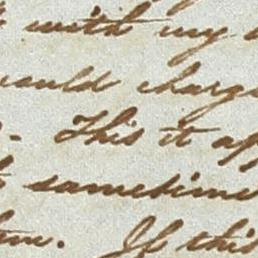 with my
would charge
This it ap
sometime
. If this